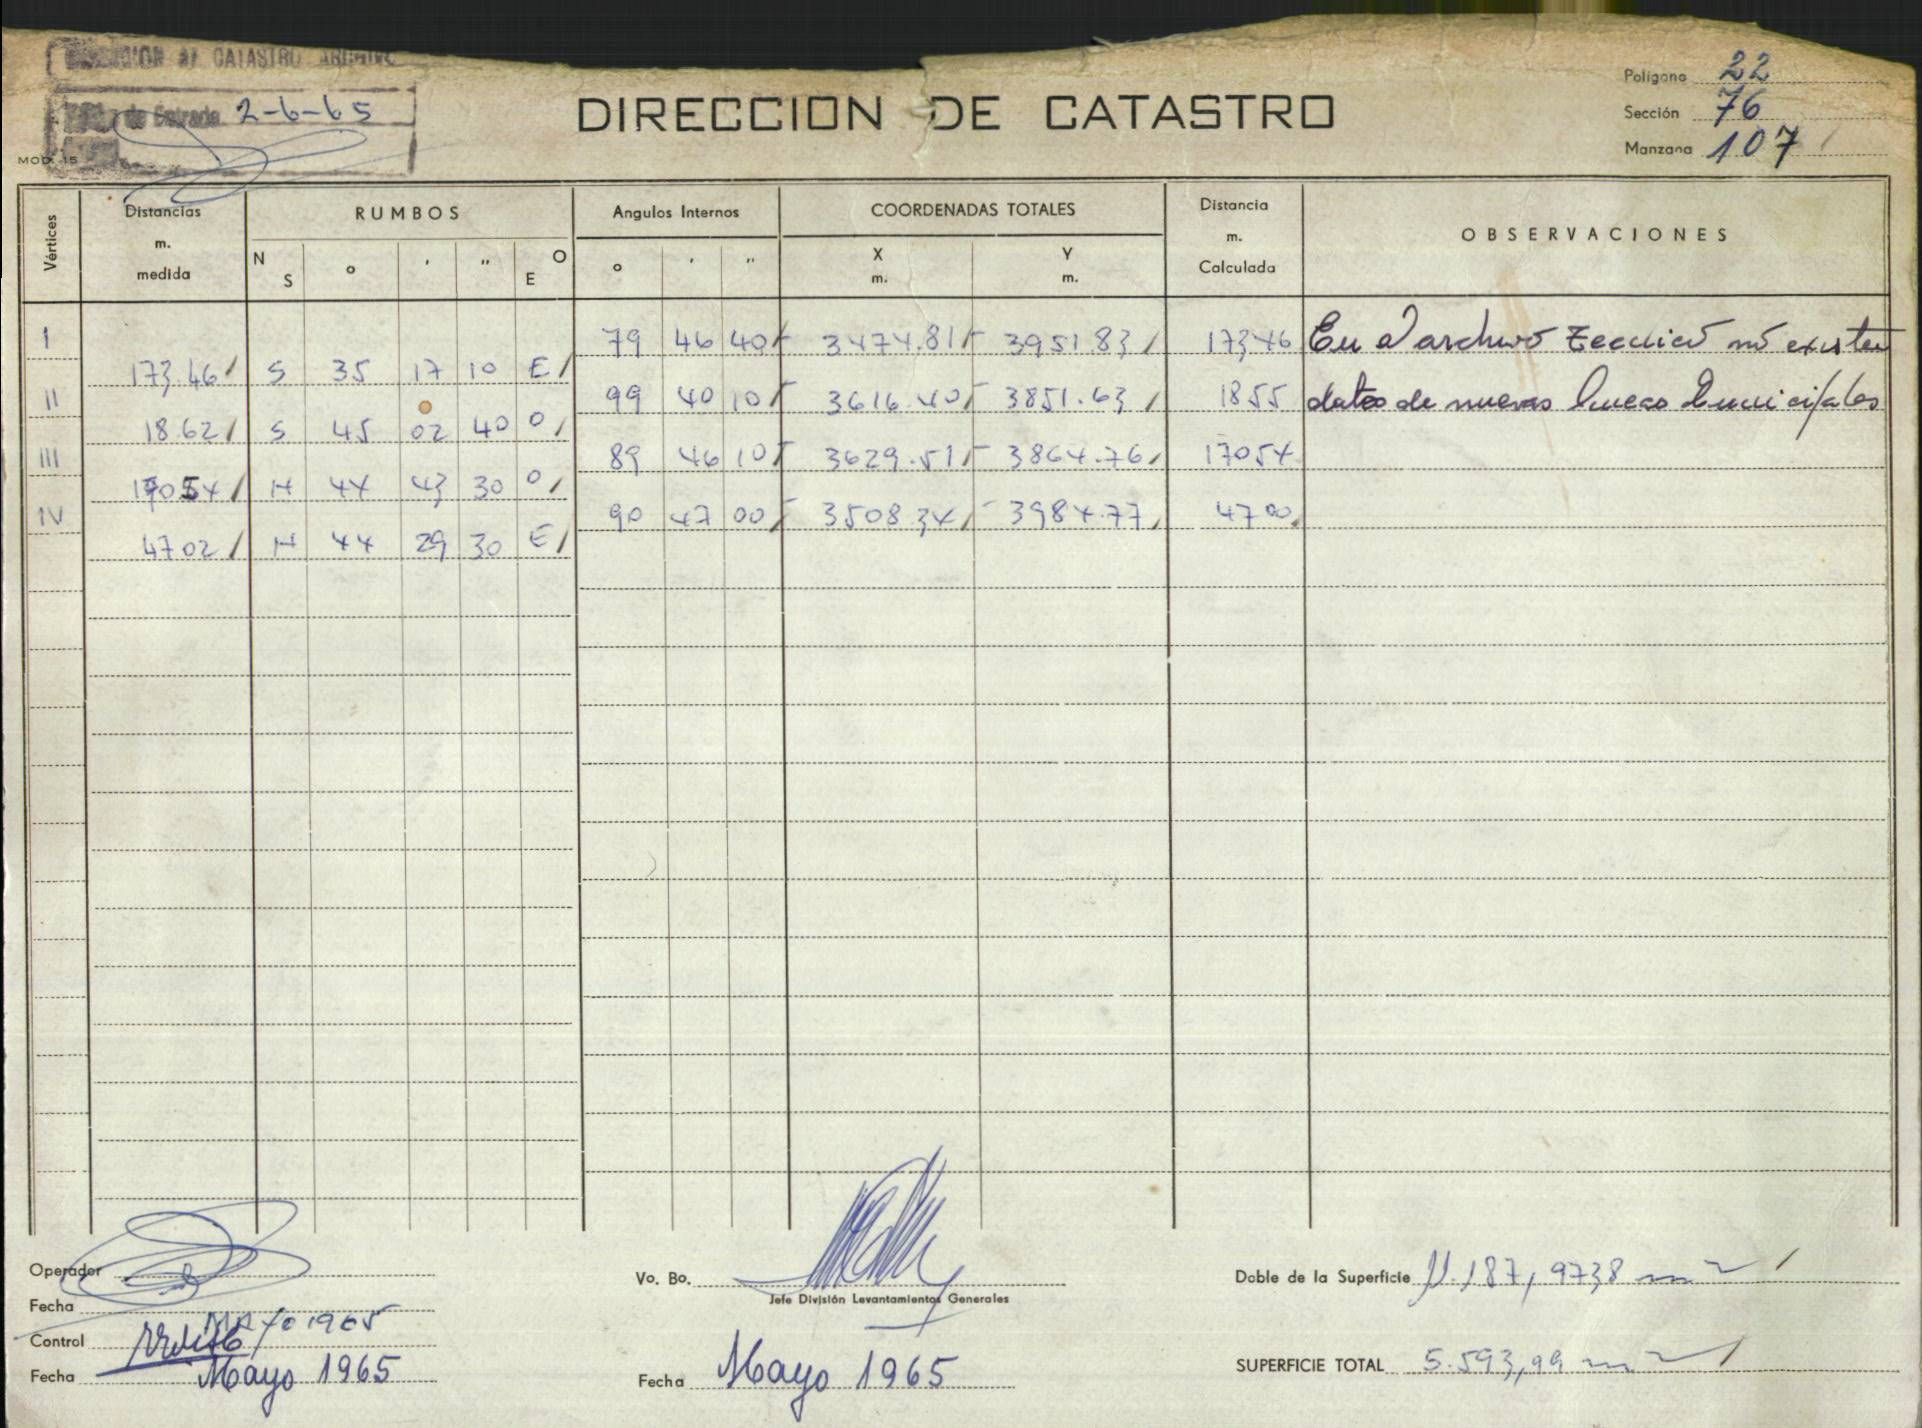 CATASTRO ARCHIVO
de Entrada 2-6-65
MOD. 15
DIRECCION DE CATASTRO
Polígono 22
Sección 76
Manzana 107
Vértices
Distancias m. medida
RUMBOS
N S
o
'
"
O E
Angulos Internos
o ' "
COORDENADAS TOTALES
X m.
Y m.
Distancia m. Calculada
OBSERVACIONES
I 79 46 40 3474.81 3951.83 173,46 En el archivo Tecnico no existen
173.46 S 35 17 10 E
II 99 40 10 3616.40 3851.63 18.55 datos de nuevas lineas Municipales
18.62 S 45 02 40 O
III 89 46 10 3629.51 3864.76 170.54
170.54 N 44 43 30 O
IV 90 47 00 3508.34 3984.77 47.00
47.02 N 44 29 30 E
Operador
Fecha MAYO 1965
Control
Fecha Mayo 1965
Vo. Bo.
Jefe División Levantamientos Generales
Fecha Mayo 1965
Doble de la Superficie 11.187,9738 m2
SUPERFICIE TOTAL 5.593,99 m2